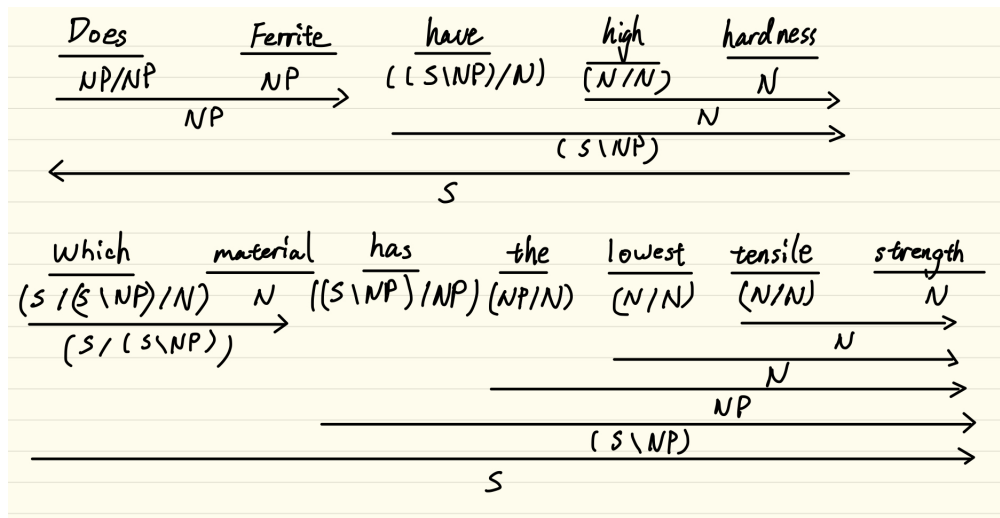 Does Ferrite have high hardness
NP/NP NP ((S\NP)/N) (N/N) N
NP N
(S\NP)
S
Which material has the lowest tensile strength
(S/(S\NP)/N) N ((S\NP)/NP) (NP/N) (N/N) (N/N) N
(S/(S\NP)) N
N
NP
(S\NP)
S